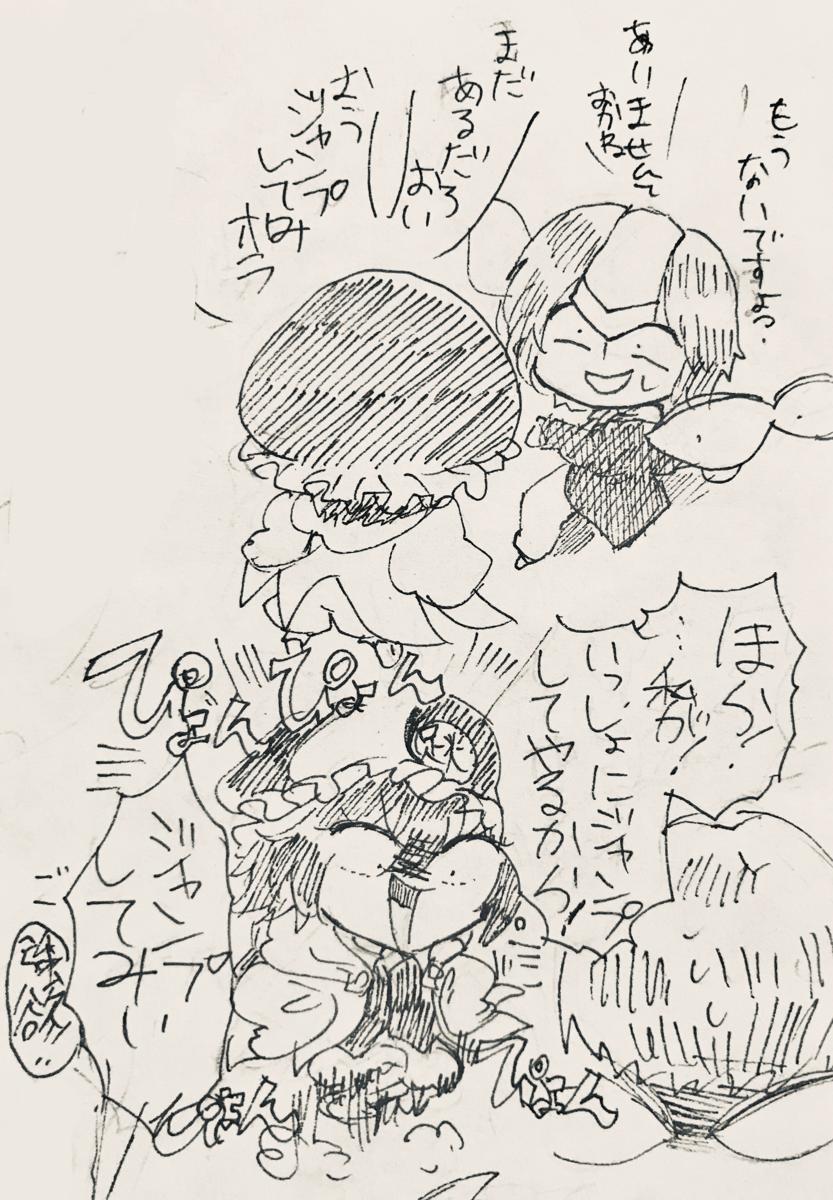 もう
ないですよっ.
ありませんて
おかね
まだ
あるだろ
おい
おう
ジャンプ
してみ
ホラ
ほら!
…私が!
いっしょにジャンプ
してやるから!
ぴょん
ぴょん
ジャンプ
してみい
ぴょん
ぴょん